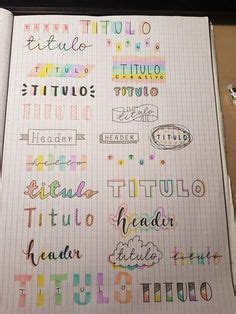 TITULO
titulo TITULO
TITULO TITULO
creativo
TITULO TITULO
titulo
Header HEADER TITULO
header TITULO
titulo TITULO
Titulo header
header titulo titulo
TITULO TITULO